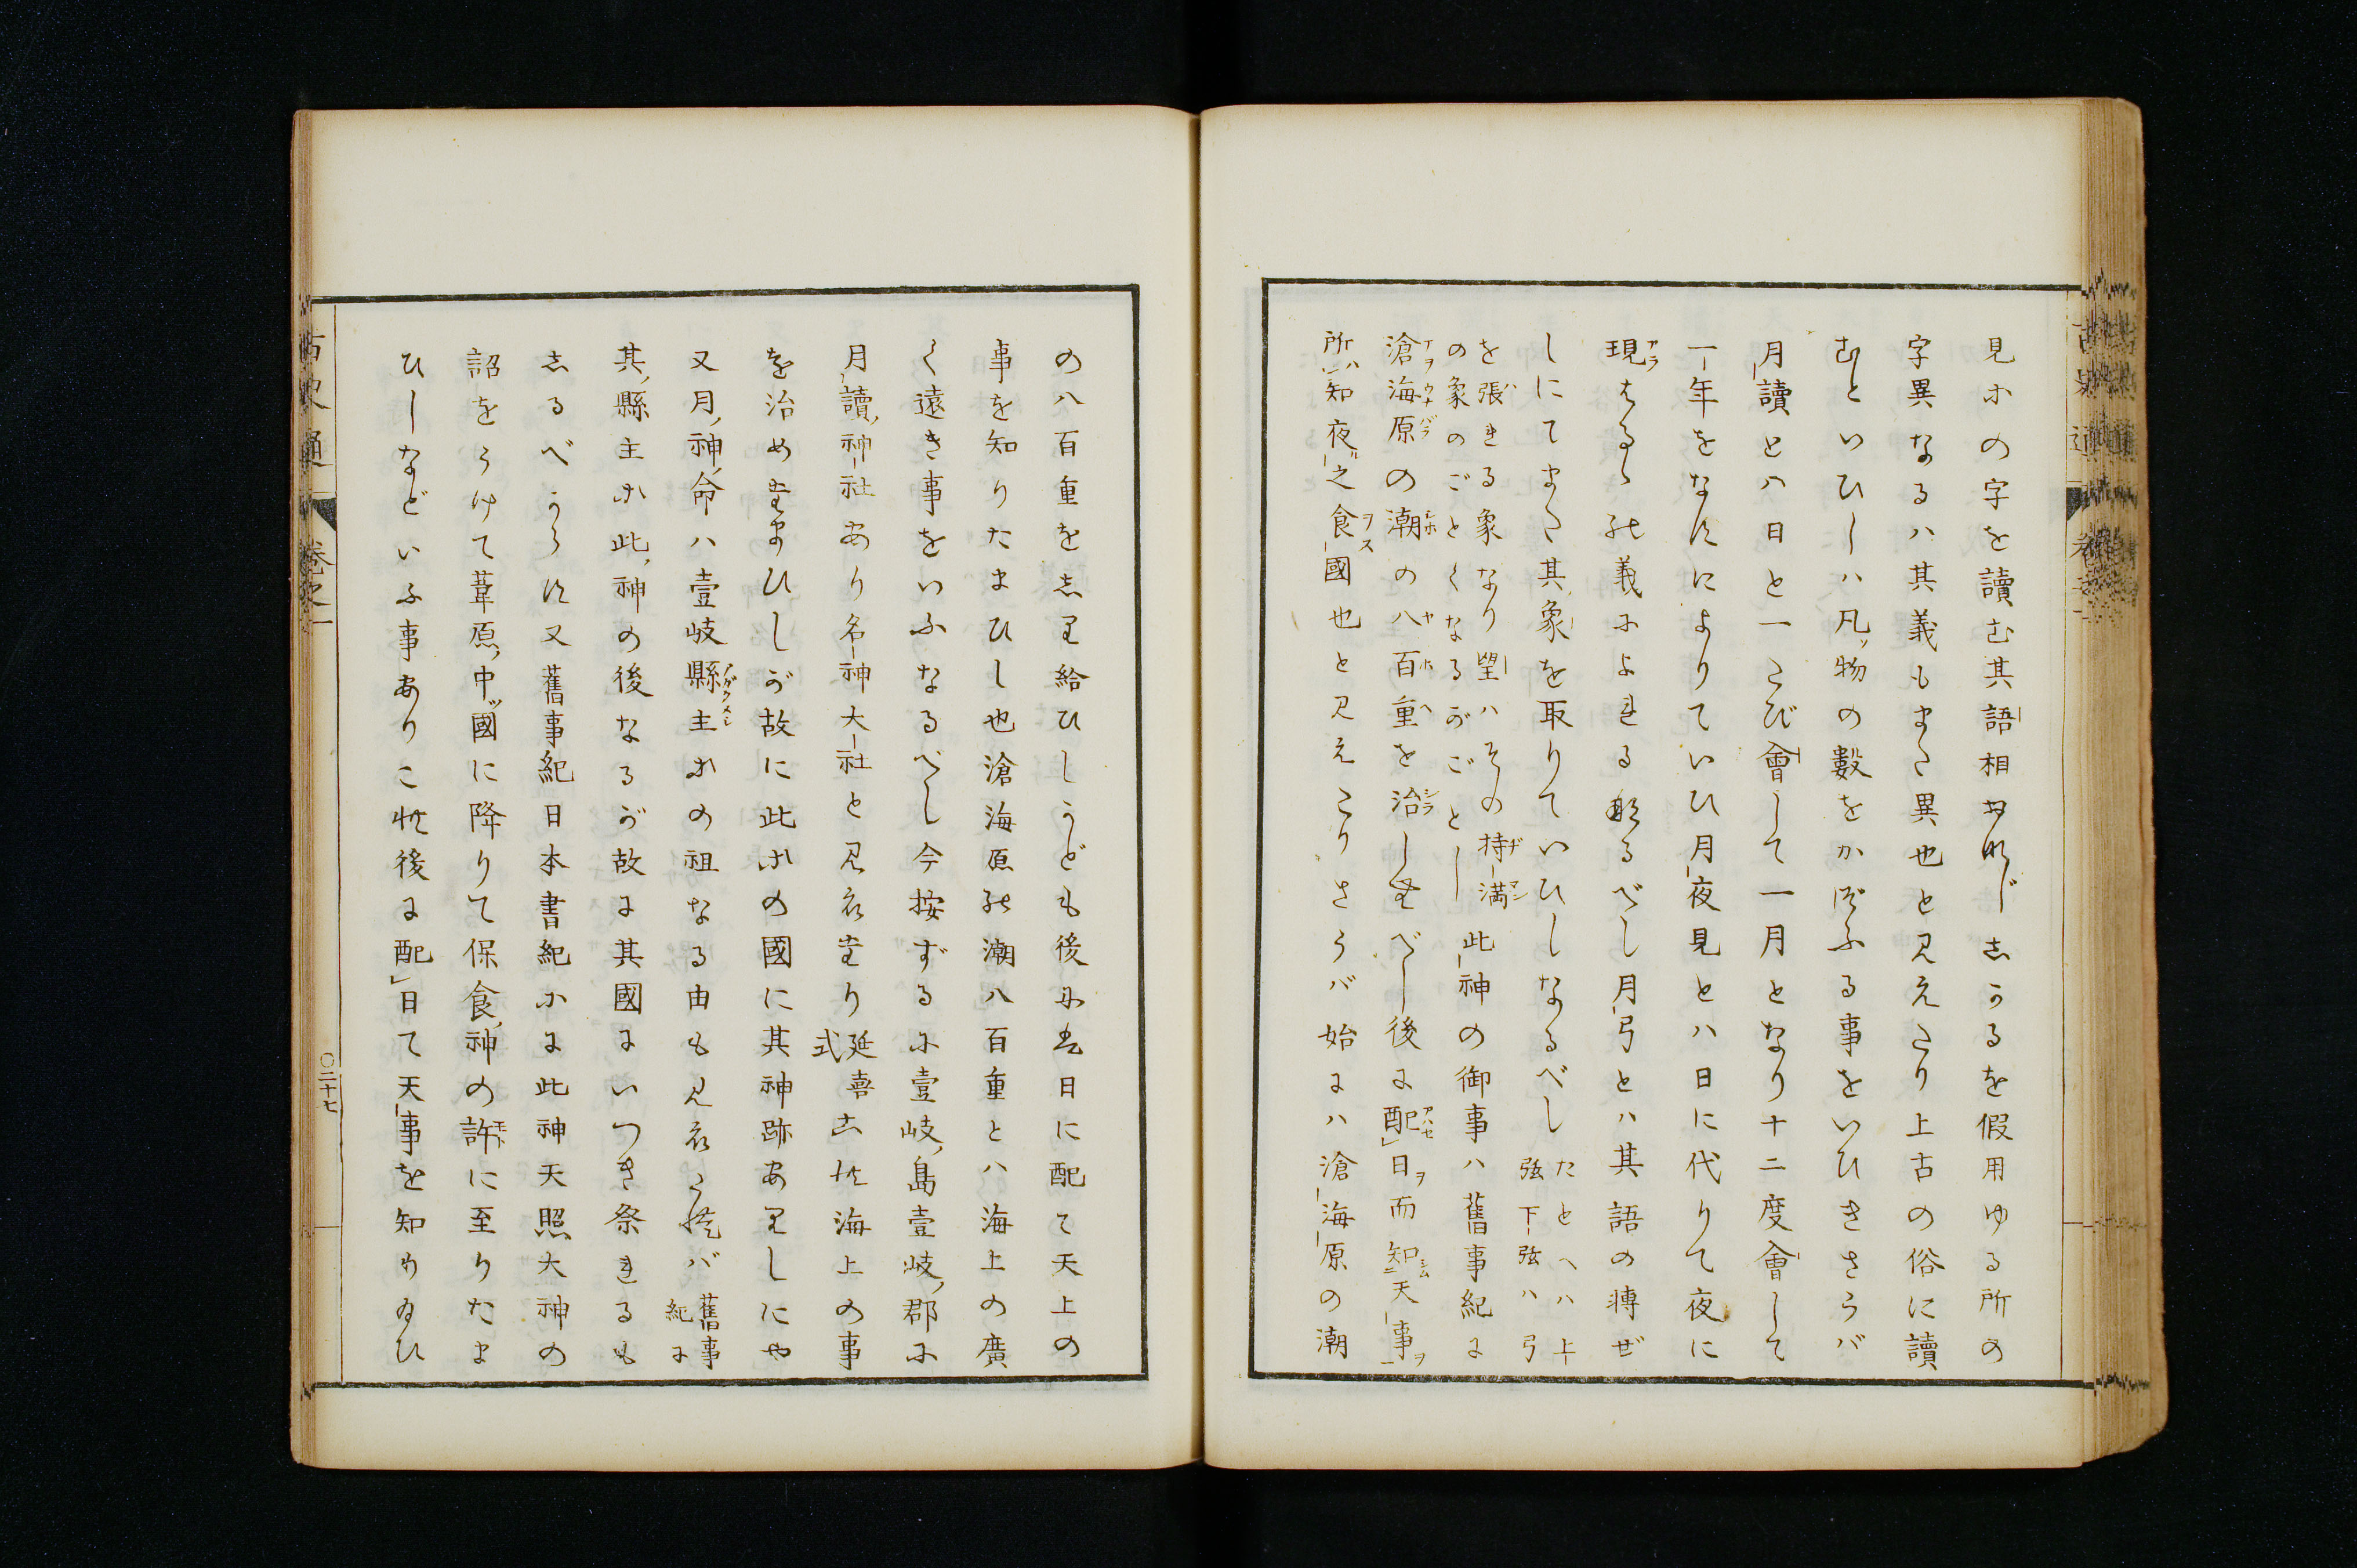 見ホの字を讀む其語相おなじしかるを假用ゆる所の
字異なるハ其義もまた異也と見えたり上古の俗に讀
むといひしハ凡ソ物の數をかぞふる事をいひきさらバ
月讀とハ日と一たび會して一月となり十二度會して
一年をなすによりていひ月夜見とハ日に代りて夜に
現はるゝの義によれるなるべし月弓とハ其語の轉ぜ
しにてまた其象を取りていひしなるべしたとへハ上弦下弦ハ弓
を張きる象なり望ハその持満の象のごとくなるがごとし此神の御事ハ舊事紀に
滄海原の潮の八百重を治しむべし後に配日而知天事
所知夜之食國也と見えたりさらバ始にハ滄海原の潮
の八百重をしり給ひしかども後に日に配て天上の
事を知りたまひし也滄海原の潮八百重とハ海上の廣
く遠き事をいふなるべし今按ずるに壹岐島壹岐郡に
月讀神社あり名神大社と見えたり延喜式これ海上の事
を治めたまひしが故に此ホの國に其神跡ありしにや
又月神命ハ壹岐縣主ホの祖なる由も見えけれバ舊事紀に
其縣主ホ此神の後なるが故に其國にいつき祭れるも
しるべからす又舊事紀日本書紀ホに此神天照大神の
詔をうけて葦原中國に降りて保食神の許に至りたま
ひしなどいふ事ありこれ後に配日て天事を知めゐひ
古史通
卷之一
〇二十七